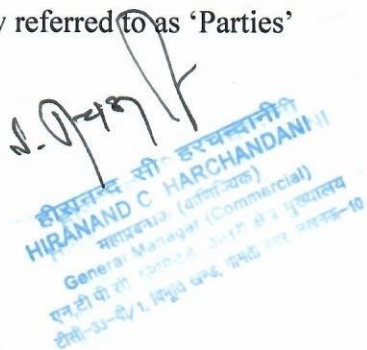 y referred to as ‘Parties’
हीरानन्द सी हरचन्दानी
HIRANAND C HARCHANDANI
महाप्रबन्धक (वाणिज्यिक)
General Manager (Commercial)
एन टी पी सी क्षेत्र मुख्यालय
टीसी-33-वी/1, विभूति खण्ड, गोमती नगर लखनऊ-10